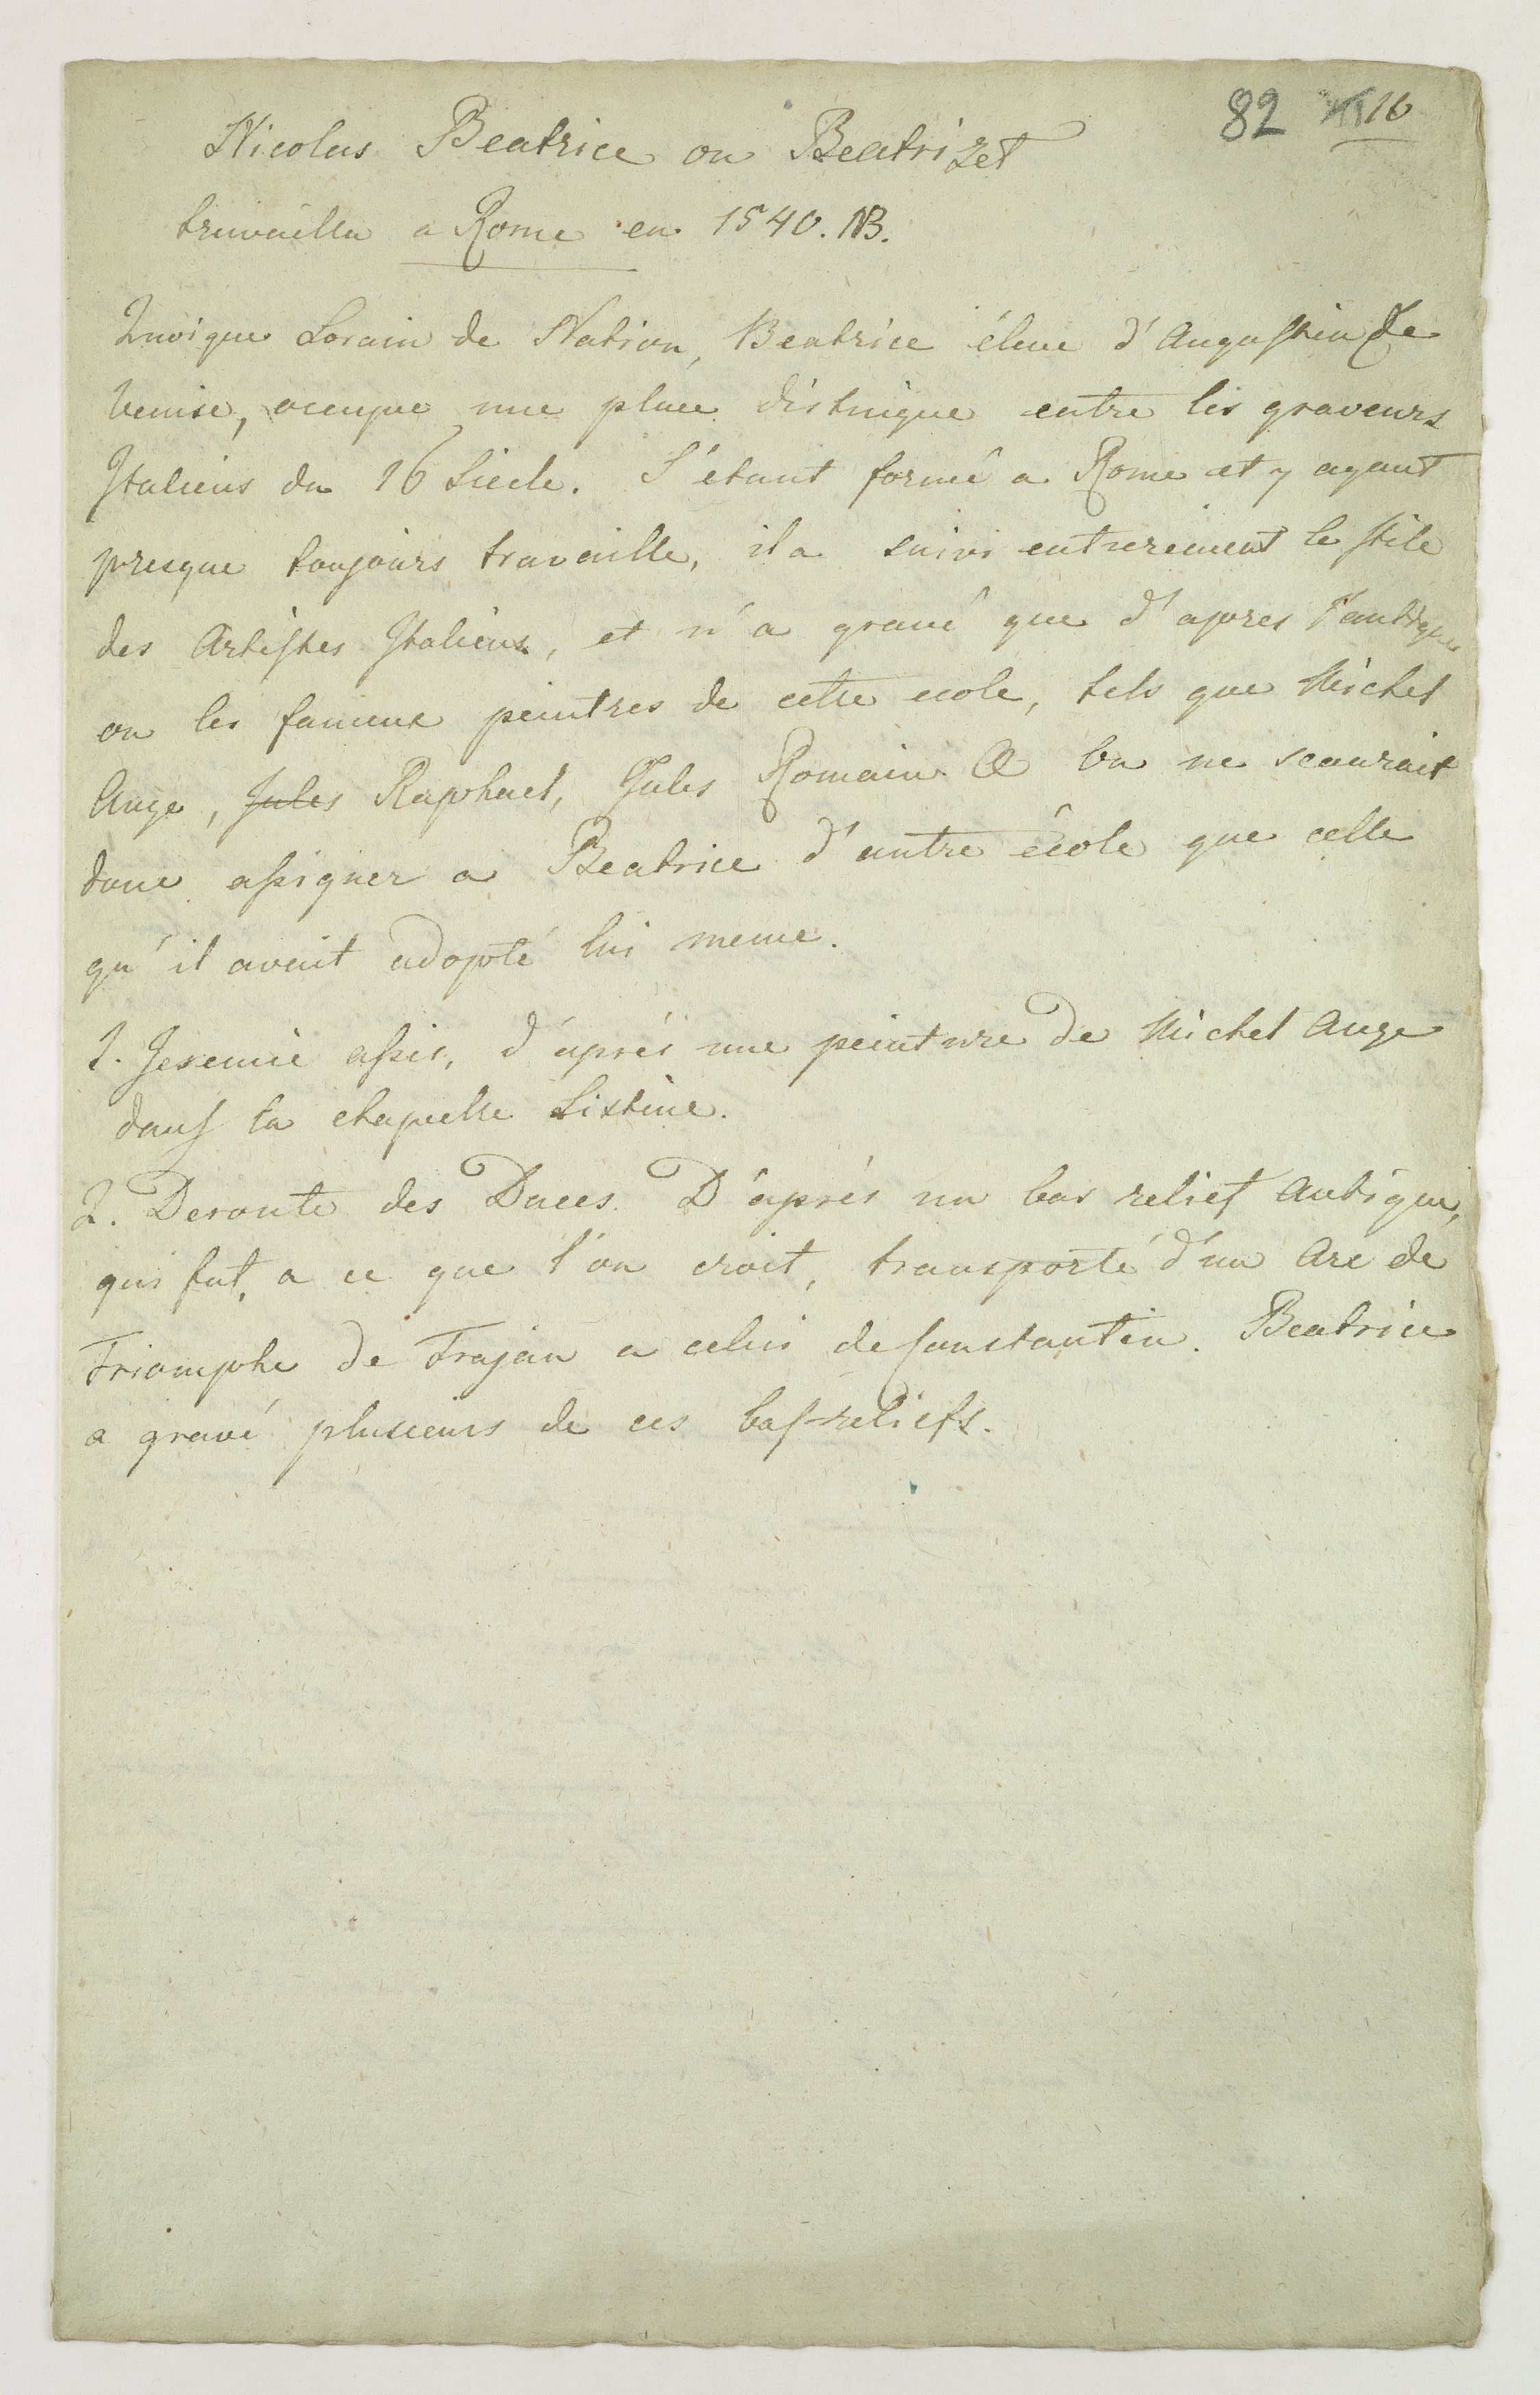 82 16
Nicolas Beatrice ou Beatrizet
travailla a Rome en 1540. NB.
Quoique Lorain de Nation, Beatrice éleve d'Augustin de
Venise, occupe une place distingue entre les graveurs
Italiens du 16 Siecle. S'étant formé a Rome et y ayant
presque toujours travaille, il a suivi entierement le stile
des Artistes Italiens, et n'a gravé que d'apres l'antique
ou les fameux peintres de cette ecole, tels que Michel
Ange, Jules Raphael, Jules Romain & On ne scaurait
donc assigner a Beatrice d'autre école que celle
qu'il avait adopté lui meme.
1. Jeremie assis, d'aprés une peinture de Michel Ange
dans la chapelle Sistine.
2. Deroute des Daces. D'aprés un bas relief Antique,
qui fut, a ce que l'on croit, transporté d'un Arc de
Triomphe de Trajan a celui de Constantin. Beatrice
a gravé plusieurs de ces bas-reliefs.